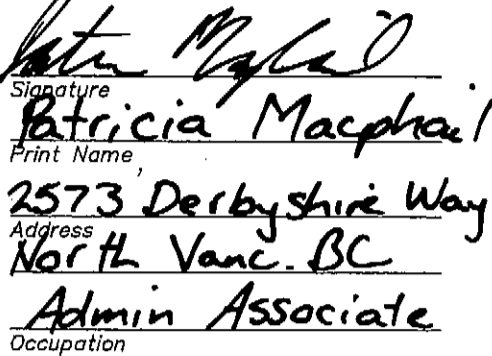 Signature
Patricia Macphail
Print Name
2573 Derbyshire Way
Address
North Vanc. BC
Admin Associate
Occupation